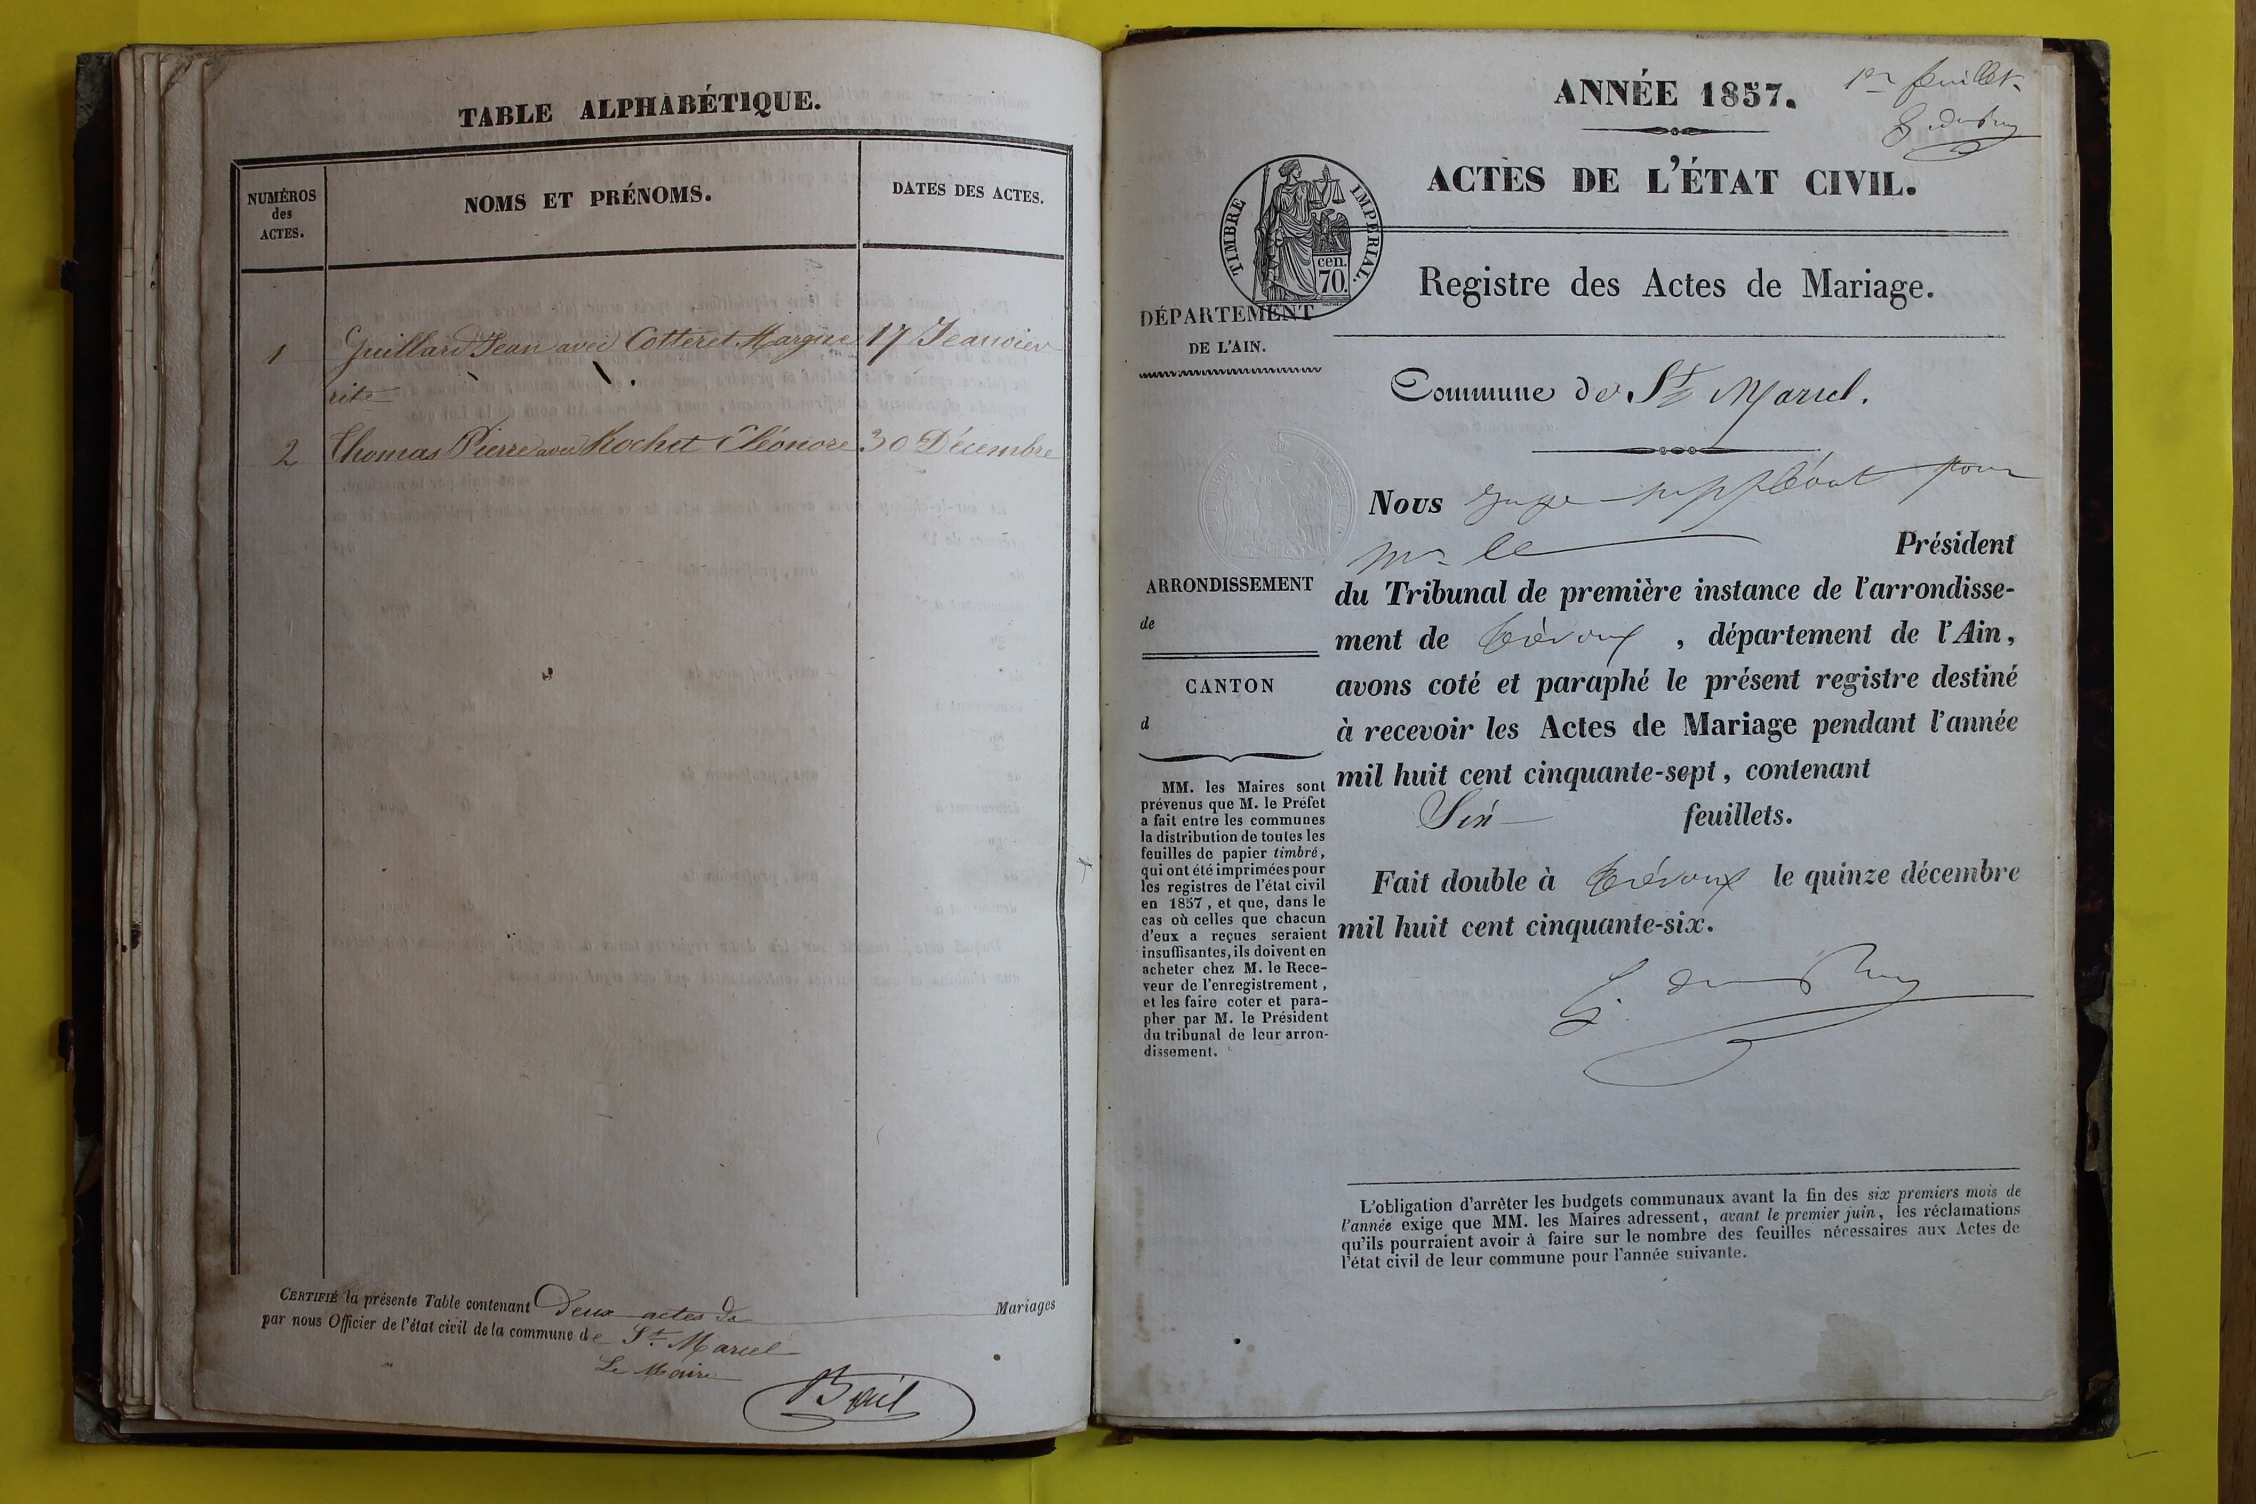 TABLE ALPHABÉTIQUE.
NUMÉROS
des
ACTES.
NOMS ET PRÉNOMS.
DATES DES ACTES.
1 Guillard Jean avec Cotteret Margue 17 Jeanvier
rite
2 Thomas Pierre avec Rochet Eléonore 30 Décembre
CERTIFIÉ la présente Table contenant Deux actes de Mariages
par nous Officier de l'état civil de la commune de St Marcel
Le Maire
ANNÉE 1857.
1er feuillet.
ACTES DE L'ÉTAT CIVIL.
TIMBRE IMPÉRIAL.
cen.
70.
Registre des Actes de Mariage.
DÉPARTEMENT
DE L'AIN.
Commune de St Marcel.
Nous Juge suppléant pour
Mr le Président
ARRONDISSEMENT
de
CANTON
d
du Tribunal de première instance de l'arrondisse-
ment de Trévoux, département de l'Ain,
avons coté et paraphé le présent registre destiné
à recevoir les Actes de Mariage pendant l'année
mil huit cent cinquante-sept, contenant
Six feuillets.
Fait double à Trévoux le quinze décembre
mil huit cent cinquante-six.
MM. les Maires sont
prévenus que M. le Préfet
a fait entre les communes
la distribution de toutes les
feuilles de papier timbré,
qui ont été imprimées pour
les registres de l'état civil
en 1857, et que, dans le
cas où celles que chacun
d'eux a reçues seraient
insuffisantes, ils doivent en
acheter chez M. le Rece-
veur de l'enregistrement,
et les faire coter et para-
pher par M. le Président
du tribunal de leur arron-
dissement.
L'obligation d'arrêter les budgets communaux avant la fin des six premiers mois de
l'année exige que MM. les Maires adressent, avant le premier juin, les réclamations
qu'ils pourraient avoir à faire sur le nombre des feuilles nécessaires aux Actes de
l'état civil de leur commune pour l'année suivante.